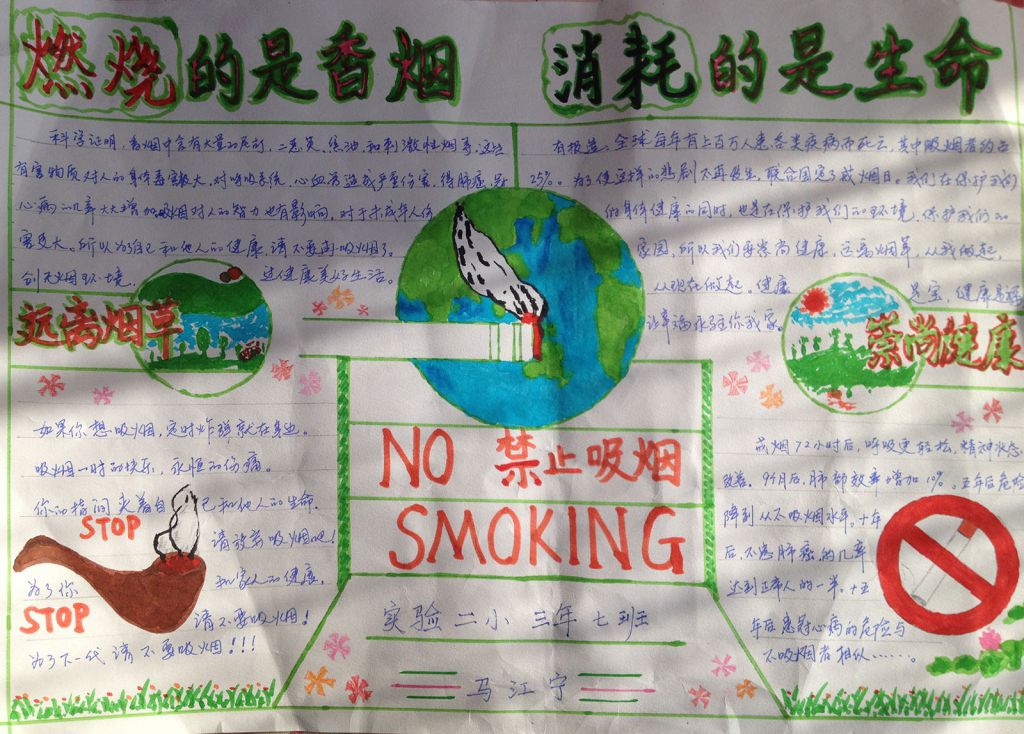 燃烧的是香烟 消耗的是生命
科学证明,香烟中含有大量的尼古丁、二恶英、焦油和刺激性烟等,这些
有害物质对人的身体毒害极大,对呼吸系统、心血管造成严重伤害,得肺癌、
心病的几率大大增加吸烟对人的智力也有影响,对于未成年人伤
害更大。所以为自己和他人的健康请不要再吸烟了。
创无烟环境, 健康美好生活。
有报道,全球每年有上百万人患各类疾病而死去,其中吸烟者约占
25%。为了使这样的悲剧不再发生,联合国定了戒烟日。我们在保护我们
的身体健康的同时,也是在保护我们的环境,保护我们的
家园,所以我们要崇尚健康,远离烟草,从我做起,
从现在做起。健康 是宝,健康是福
让幸福永驻你我家。
远离烟草
崇尚健康
如果你想吸烟,定时炸弹就在身边。
吸烟一时的快乐,永恒的伤痛。
你的指间夹着自己和他人的生命.
STOP
请放弃吸烟吧!
为了你和家人的健康,
STOP
请不要吸烟!
为了下一代请不要吸烟!!!
NO 禁止吸烟
SMOKING
实验二小 三年七班
马江宁
戒烟72小时后,呼吸更轻松,精神状态
改善。9个月后,肺部效率增加10%,五年后危险
降到从不吸烟水平。十年
后,不患肺癌的几率
达到正常人的一半。十五
年后患冠心病的危险与
不吸烟者相似……。